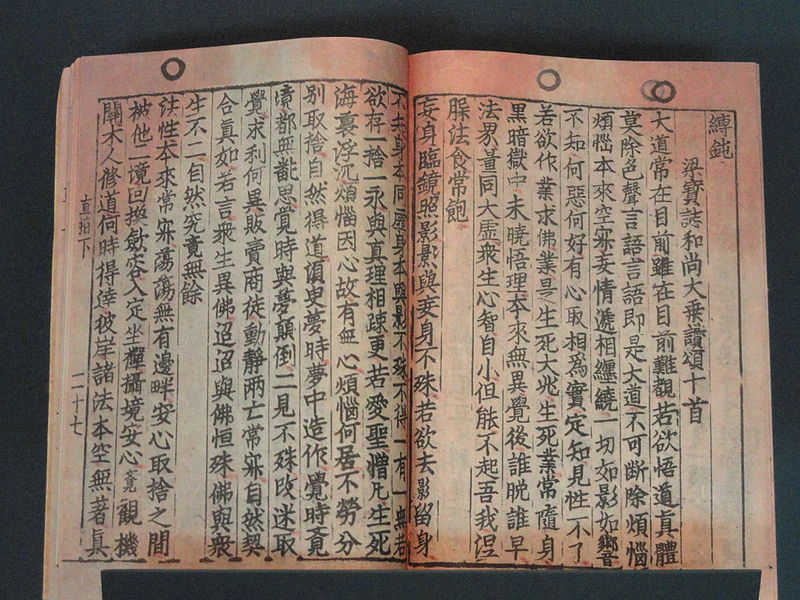 縛鈍
梁寶誌和尚大乗讚頌十首
大道常在目前雖在目前難覩若欲悟道真體
莫除色聲言語言語即是大道不可斷除煩惱
煩惱本來空寂妄情遞相纒繞一切如影如響
不知何惡何好有心取相為實定知見性不了
若欲作業求佛業是生死大兆生死業常隨身
黑暗獄中未曉悟理本來無異覺後誰晩誰早
法界量同大虛衆生心智自小但能不起吾我涅
槃法食常飽
妄身臨鏡照影影與妄身不殊若欲去影留身
不知身本同虛身本與影不殊不得一有一無若
欲存一捨一永與真理相踈更若愛聖憎凡生死
海裏浮沉煩惱因心故有無心煩惱何居不勞分
別取捨自然得道湏臾夢時夢中造作覺時覺
境都無飜思覺時與夢顛倒二見不殊改迷取
覺求利何異販賣商徒動静兩亡常寂自然契
合真如若言衆生異佛迢迢與佛恒殊佛與衆
生不二自然究竟無餘
法性本來常寂蕩蕩無有邊畔安心取捨之間
被他二境回換歛容入定坐禪攝境安心覺觀機
關木人修道何時得達彼岸諸法本空無著真
直指下
二十七